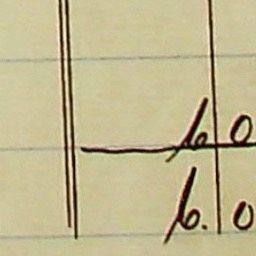 6 0
6. 0